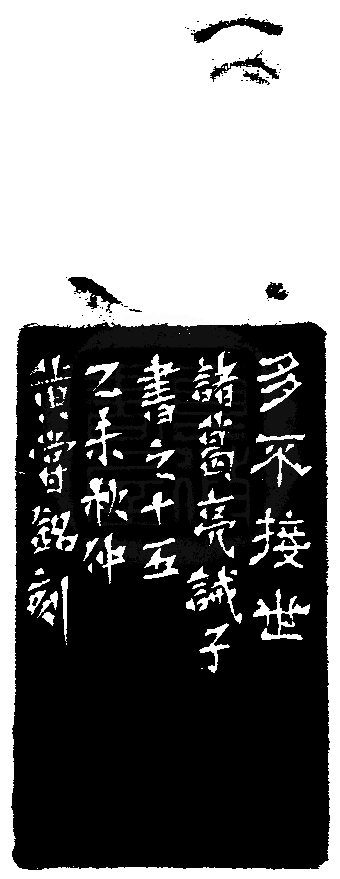 多不接世
諸葛亮誡子
書之十五
乙未秋仲
黄嘗銘刻